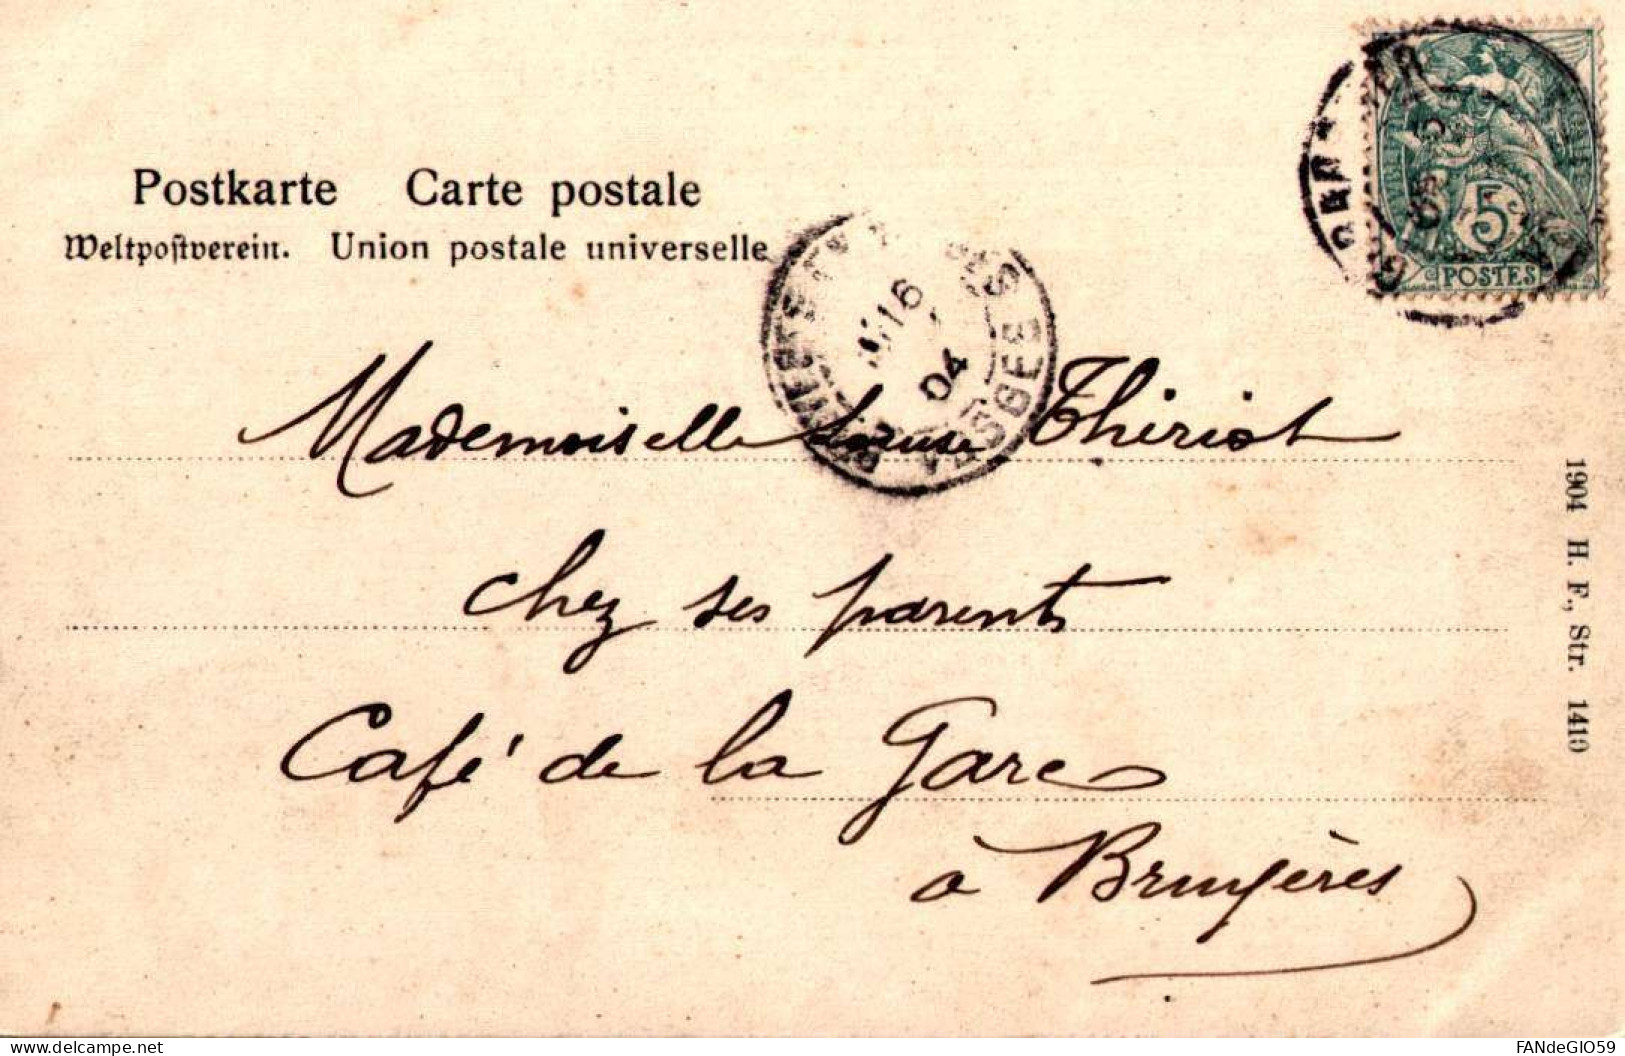 Postkarte Carte postale
Weltpostverein. Union postale universelle
16
04
5c
POSTES
Mademoiselle Louise Thiriot
chez ses parents
Café de la Gare
à Bruyères
1904 H. F., Str. 1410
delcampe.net
FANdeGIO59